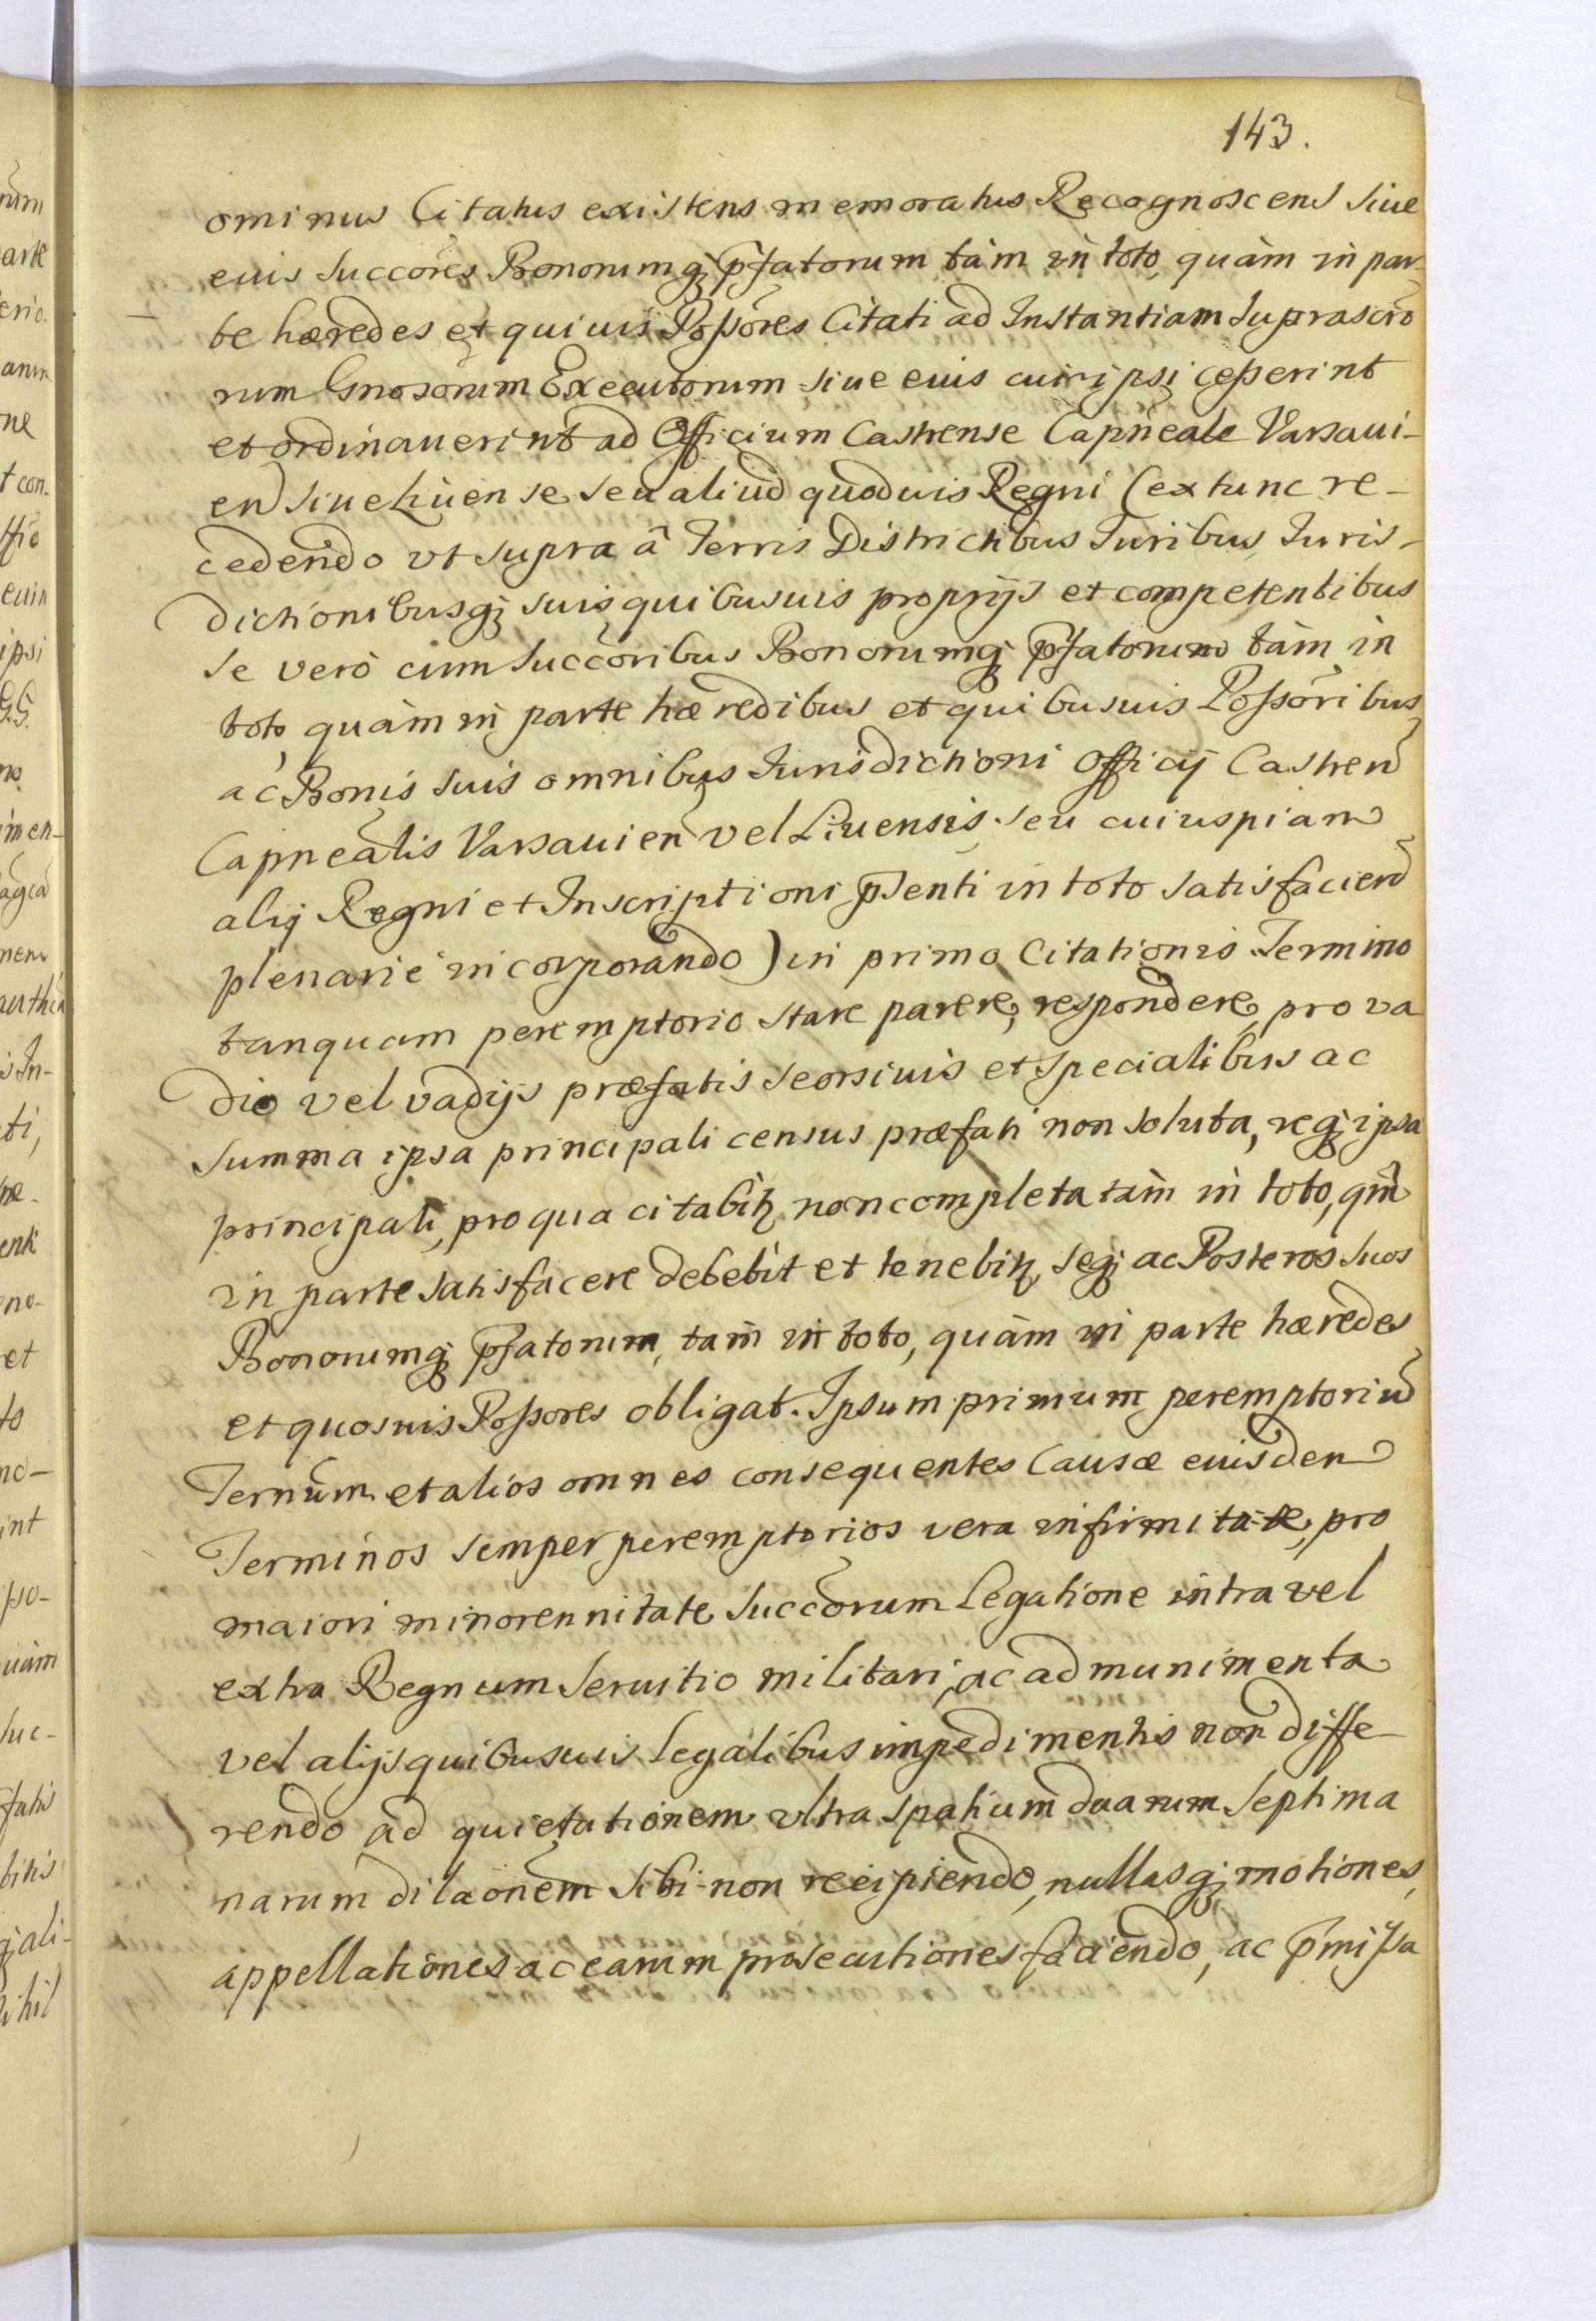 143.
ominus Citatus existens memoratus Recognoscens siue
euis succões Bonorumq; p̃fatorum tàm in toto, quàm in par-
te hæredes et quiuis Possõres Citati ad Instantiam suprascrõ
rum Gnosorum Executorum siue euis cui ipsi cesserint
et ordinauerint ad Officium Castrense Capñeale Varsaui-
en siue Liuense seu aliud quoduis Regni (ex tunc re-
cedendo vt supra â Terris Districtibus Iuribus, Iuris-
dictionibusq; suis quibusuis proprijs et competentibus
se verò cum succõribus Bonorumq; p̃fatorum tàm in
toto quàm in parte hæredibus et quibusuis Possõribus
ac Bonis suis omnibus Iurisdictioni Officij Castren
Capneãlis Varsauien vel Liuensis seu cuiuspiam
alij Regni et Inscriptioni p̃senti in toto satisfaciend
plenarie incorporando) in primo Citationis Termino
tanquam peremptorio stare parere, respondere, pro va
dio vel vadijs præfatis seorsiuis et specialibus ac
summa ipsa principali census præfati non soluta, req; ipsa
principali, pro qua citabitꝛ non completa tàm in toto, qm̃
in parte satisfacere debebit et tenebitꝛ, seq; ac Posteros suos
Bonorumq; p̃fatorum, tam in toto, quàm in parte hæredes
et quosuis Possores obligat. Ipsum primum peremptoriũ
Ternũm et alios omnes consequentes Causæ euisdem
Terminos semper peremptorios vera infirmitate, pro
maiori minorennitate succõrum Legatione intra vel
extra Regnum seruitio militari, ac ad munimenta
vel alijs quibusuis legalibus impedimentis non diffe-
rendo ad quietationem vltra spatium duarum septima
narum dilaõnem sibi non recipiendo, nullasq; motiones,
appellationes ac earum prosecutiones faciendo, ac p̃missa